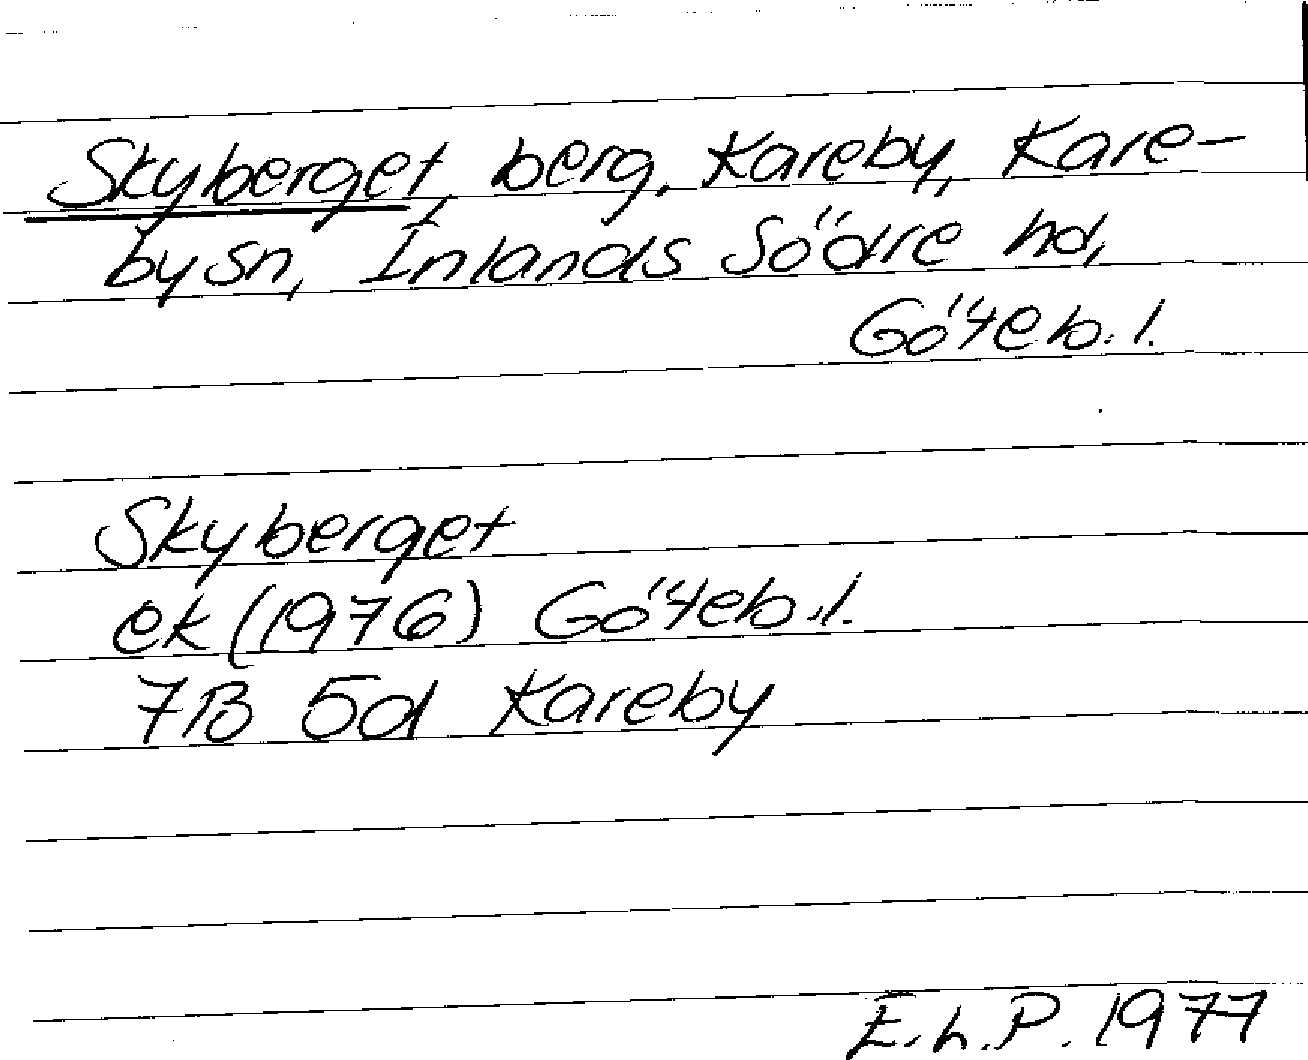 Skyberget, berg, Kareby, Kare-
by sn, Inlands Södre hd,
Göteb. l.
Skyberget
ek (1976) Göteb. l.
7B 5d Kareby
E.L.P. 1977